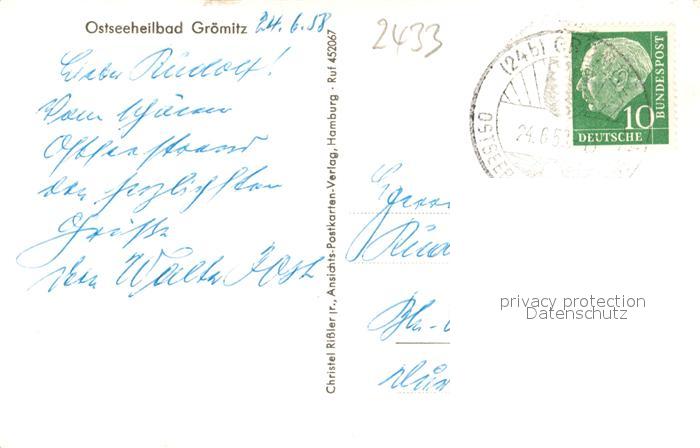 Ostseeheilbad Grömitz 24.6.58
2433
Lieber Rudolf!
Vom schönen
Ostseestrand
die herzlichsten
Grüße
Dein Walter
Christel Rißler jr., Ansichts-Postkarten-Verlag, Hamburg · Ruf 452067
(24b) G
OSTSEE
24.6.5
10
DEUTSCHE
BUNDESPOST
Herrn
Rud
privacy protection
Datenschutz